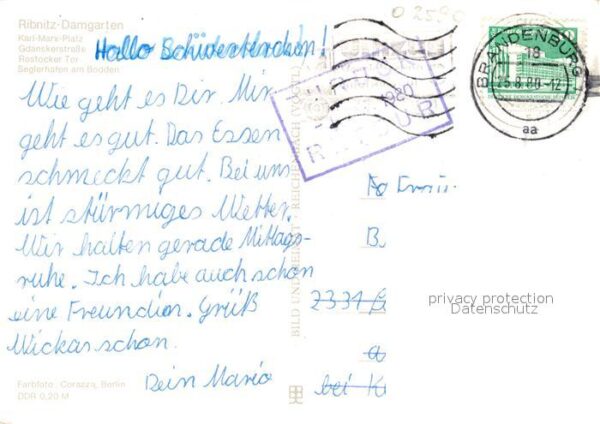 Ribnitz-Damgarten
Karl-Marx-Platz
Gdanskerstraße
Rostocker Tor
Seglerhafen am Bodden
Hallo
Wie geht es Dir. Mir
geht es gut. Das Essen
schmeckt gut. Bei uns
ist stürmiges Wetter.
Wir halten gerade Mittags-
ruhe. Ich habe auch schon
eine Freundien. Grüß
schon.
Dein Mario
Farbfoto: Corazza, Berlin
DDR 0,20 M
BILD UND HEIMAT REICHENBACH (VOGTL)
0 2590
1980
BRANDENBURG
18
25.8.80-12
aa
10
B
a
privacy protection
Datenschutz